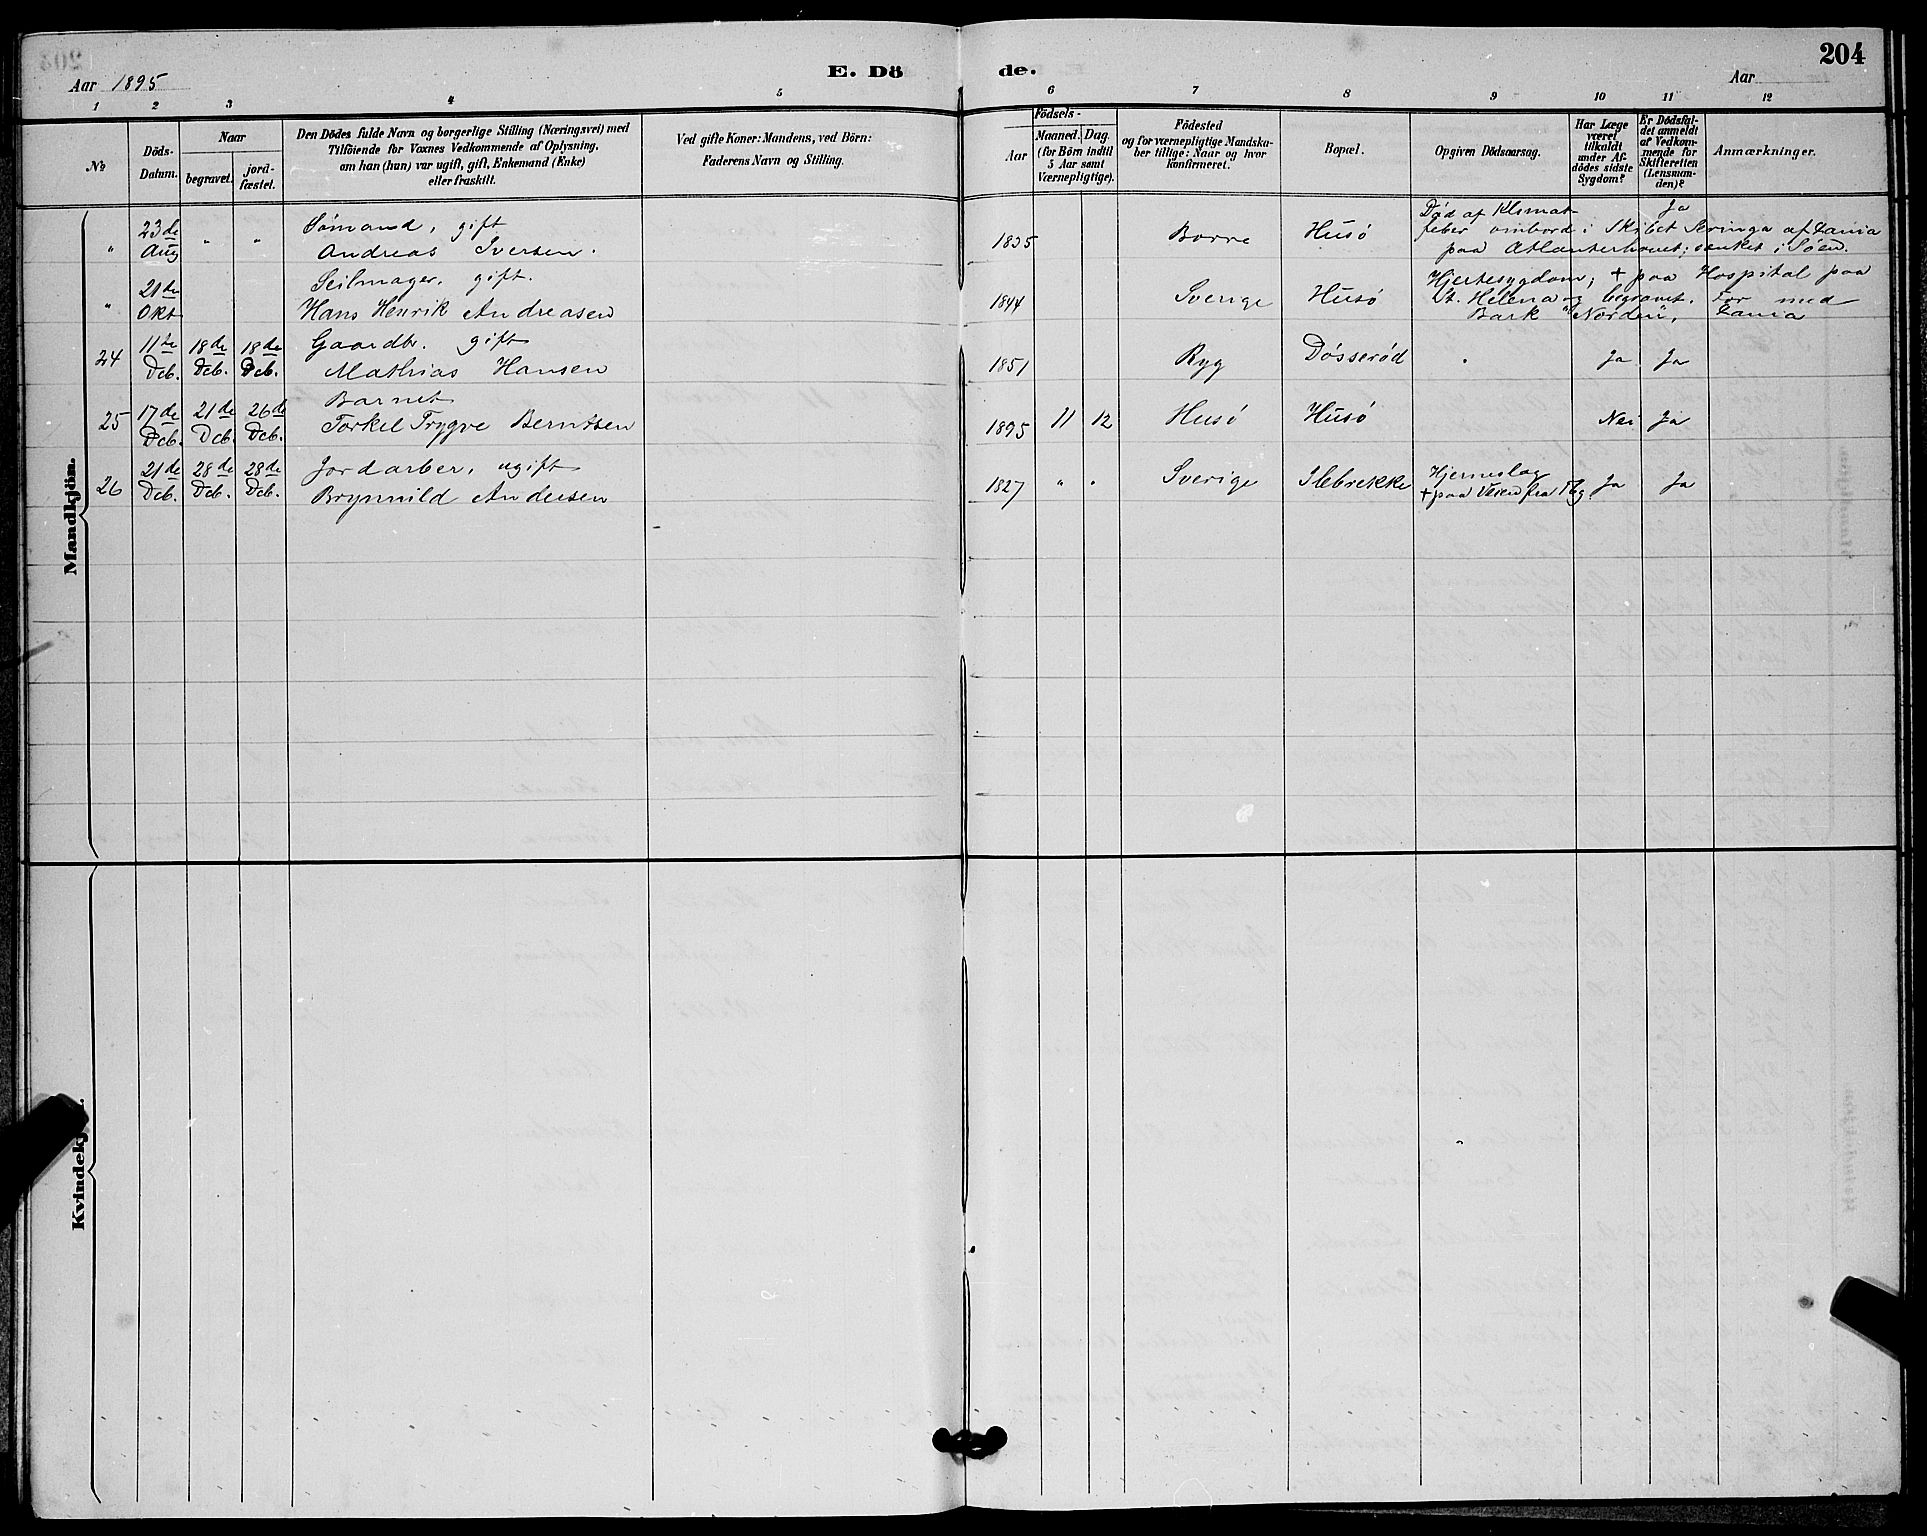 204
Aar 1895
E. Dö
de.
Aar
1 2 3 4 5 6 7 8 9 10 11 12
№
Döds-
Datum.
Naar
begravet.
jord-
fæstet.
Den Dödes fulde Navn og borgerlige Stilling (Næringsvei) med
Tilföiende for Voxnes Vedkommende af Oplysning,
om han (hun) var ugift, gift, Enkemand (Enke)
eller fraskilt.
Ved gifte Koner: Mandens, ved Börn:
Faderens Navn og Stilling.
Födsels-
Aar
Maaned. Dag.
(for Börn indtil
5 Aar samt
Værnepligtige).
Födested
og for værnepligtige Mandska-
ber tillige: Naar og hvor
konfirmeret.
Bopæl.
Opgiven Dödsaarsag.
Har Læge
været
tilkaldt
under Af-
dödes sidste
Sygdom?
Er Dödsfal-
det anmeldt
af Vedkom-
mende for
Skifteretten
(Lensman-
den)?
Anmærkninger.
Mandkjön.
" 23de Aug " "
Sømand, gift
Andreas Iversen.
1835 Borre Husö
Død af Klimat- Ja
feber ombord i Skibet Seringa af Zania
paa Atlanterhavet; sænket i Søen.
" 21de Okt
Seilmager, gift.
Hans Henrik Andreasen
1844 Sverige Husö
Hjertesygdom; + paa Hospital paa
St. Helena og begravet. For med
Bark "Norden", Zania
24 11te Dcb. 18de Dcb. 18de Dcb.
Gaardbr. gift
Mathias Hansen
1851 Ryg Døsserød " Ja Ja
25 17de Dcb. 21de Dcb. 26de Dcb.
Barnet
Torkel Trygve Berntsen
1895 11 12 Husö Husö Nei Ja
26 21de Dcb. 28de Dcb. 28de Dcb.
Jordarber, ugift
Brynnild Andersen
1827 " " Sverige Ilebrekke
Hjerneslag
+ paa Veien fra Tbg. Ja Ja
Kvindekj